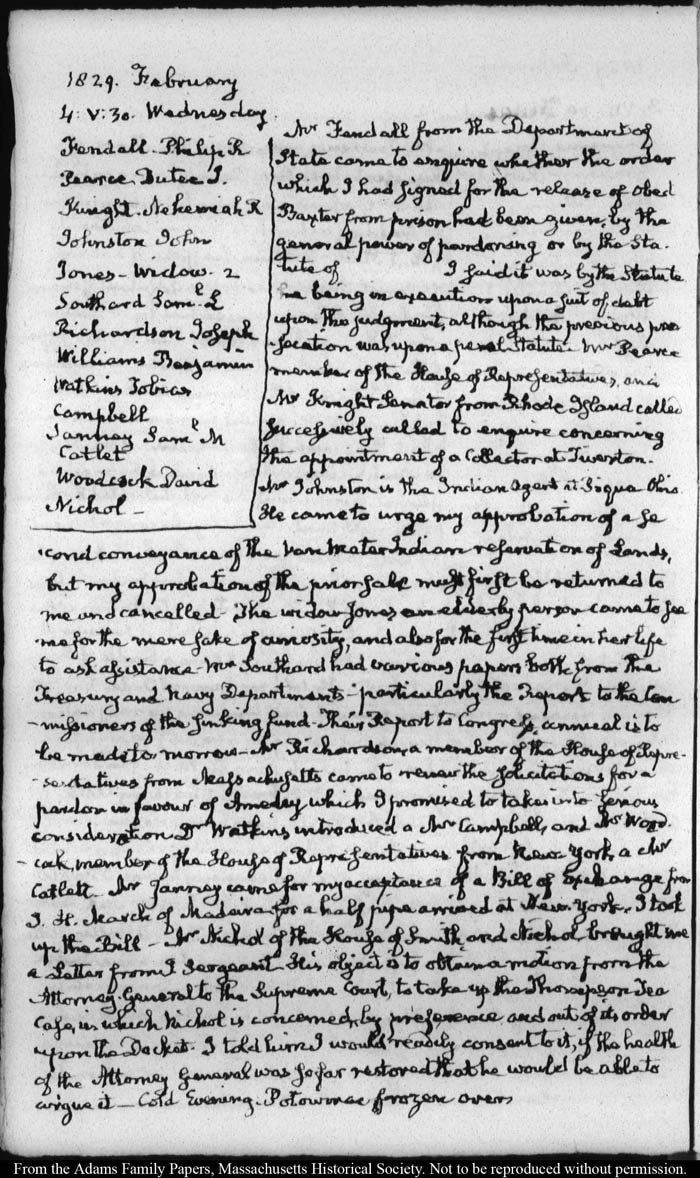 1829. February
4. V:30. Wednesday.
Fendall. Philip R
Pearce Dutee J.
Knight. Nehemiah R
Johnston John
Jones - Widow. 2
Southard Saml. L
Richardson Joseph
Williams Benjamin
Watkins Tobias
Campbell
Janney Saml. M
Catlet
Woodcock David
Nichol -
Mr Fendall from the Department of
State came to enquire whether the order
which I had signed for the release of Obed
Baxter from prison had been given, by the
general power of pardoning or by the Sta-
tute of I said it was by the Statute
he being in execution upon a suit of debt
upon the judgment, although the previous pro-
-secution was upon a penal Statute. Mr Pearce
member of the House of Representatives, and
Mr Knight Senator from Rhode Island called
successively called to enquire concerning
the appointment of a Collector at Tiverton.
Mr Johnston is the Indian Agent at Piqua Ohio.
He came to urge my approbation of a se
cond conveyance of the Van Mater Indian reservation of Lands,
but my approbation of the prior sale must first be returned to
me and cancelled - The widow Jones an elderly person came to see
me for the mere sake of curiosity, and also for the first time in her life
to ask assistance - Mr Southard had various papers both from the
Treasury and Navy Departments - particularly the Report to the Com
-missioners of the sinking fund - Their Report to Congress, annual is to
be made to morrow - Mr Richardson, a member of the House of Repre-
-sentatives from Massachusetts came to renew the solicitations for a
pardon in favour of Ameday which I promised to take into serious
consideration Dr Watkins introduced a Mr Campbell, and Mr Wood.
-cock, member of the House of Representatives from New York, a Mr
Catlett. Mr Janney came for my acceptance of a Bill of Exchange from
J. H. March of Madeira for a half pipe arrived at New-York. I took
up the Bill - Mr Nichol of the House of Smith and Nichol, brought me
a Letter from J Sergeant. His object is to obtain a motion from the
Attorney-General to the Supreme Court, to take up the Thompson Tea
Case, in which Nichol is concerned, by preference and out of its order
upon the Docket. I told him I would readily consent to it, if the health
of the Attorney General was so far restored that he would be able to
argue it - Cold Evening. Potowmac frozen over.
From the Adams Family Papers, Massachusetts Historical Society. Not to be reproduced without permission.